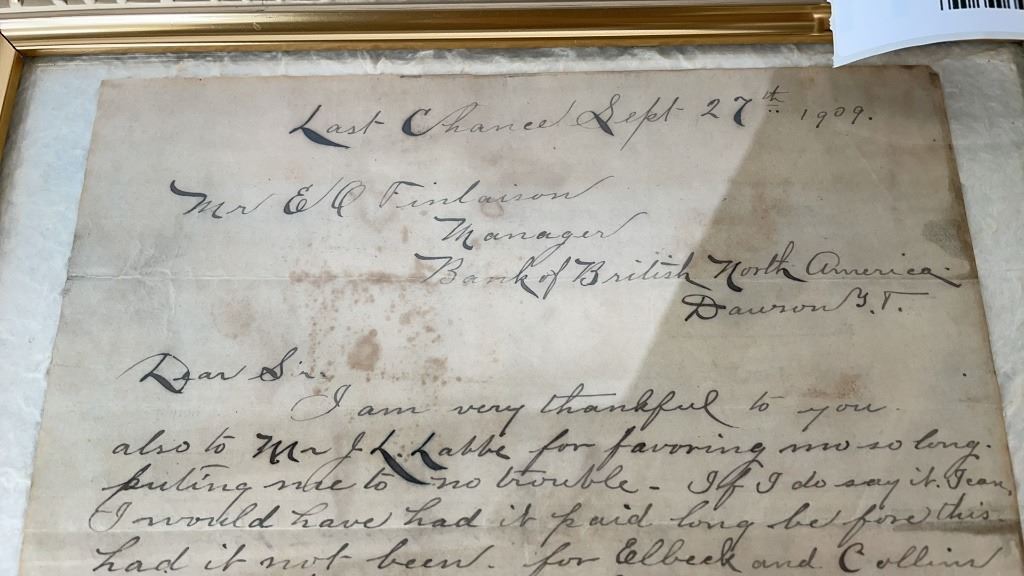 Last Chance Sept 27th 1909.
Mr E O Finlaison
Manager
Bank of British North America.
Dawson Y.T.
Dear Sir.
I am very thankful to you
also to Mr J. L. Labbe for favoring me so long.
puting me to no trouble - If I do say it.
I would have had it paid long before this
had it not been. for Elbeck and Collins